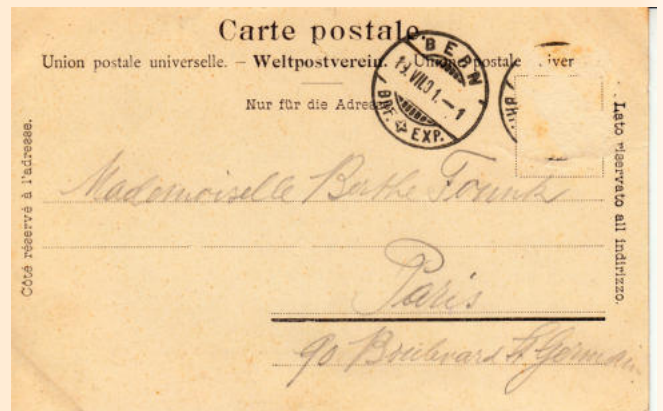 Carte postale.
Union postale universelle. – Weltpostverein. – Unione postale iver
Nur für die Adresse
BERN
13. VII.01.–1
BRF. EXP.
BRF.
Côté réservé à l'adresse.
Lato riservato all indirizzo.
Mademoiselle Berthe
Paris
90 Boulevard St. Germain